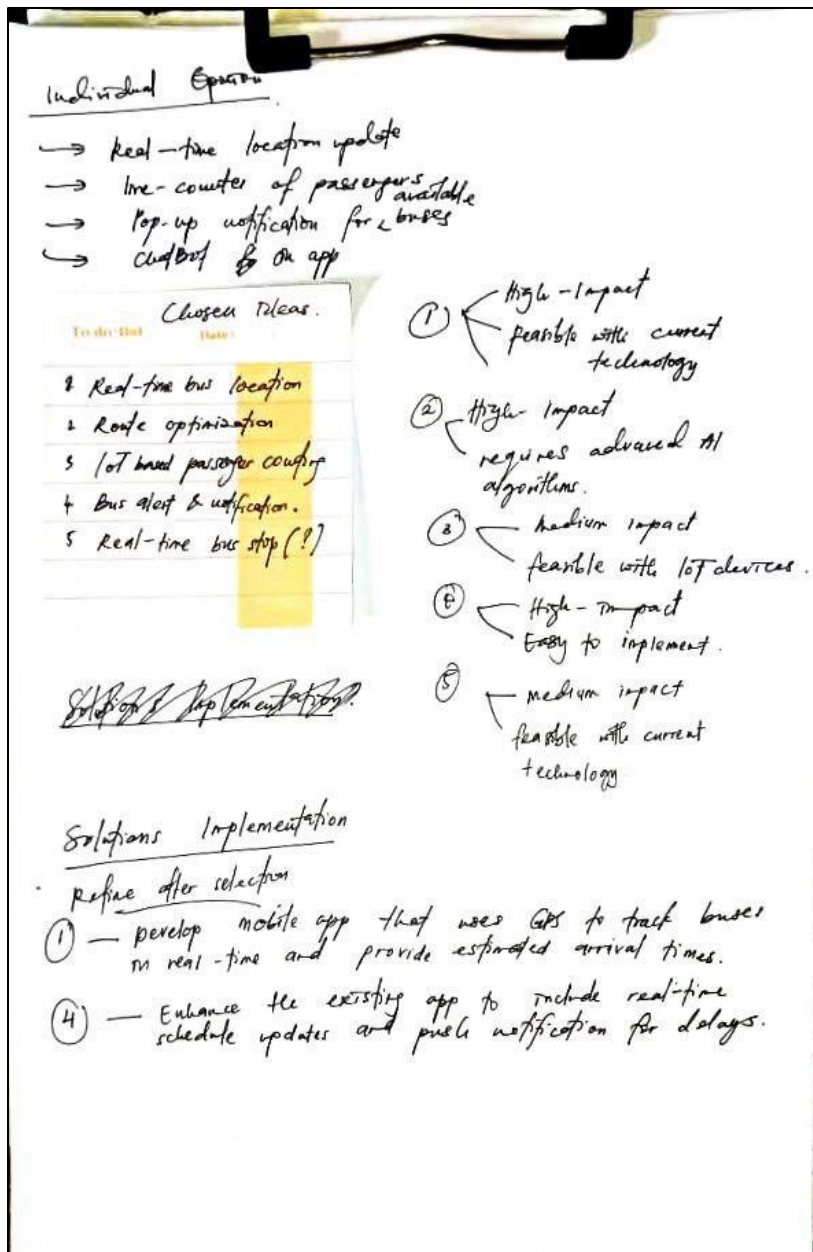 Individual Opinion
→ Real-time location update
→ line-counter of passengers
→ Pop-up notification for available buses
→ ChatBot on app
Chosen Ideas.
To do list Date:
1 Real-time bus location
2 Route optimization
3 IoT based passenger counting
4 Bus alert & notification.
5 Real-time bus stop (?)
① High-Impact
feasible with current
technology
② High-Impact
requires advanced AI
algorithms.
③ medium impact
feasible with IoT devices.
④ High-Impact
Easy to implement.
⑤ medium impact
feasible with current
technology
Solutions Implementation.
Solutions Implementation
Refine after selection
① — Develop mobile app that uses GPS to track buses
in real-time and provide estimated arrival times.
④ — Enhance the existing app to include real-time
schedule updates and push notification for delays.